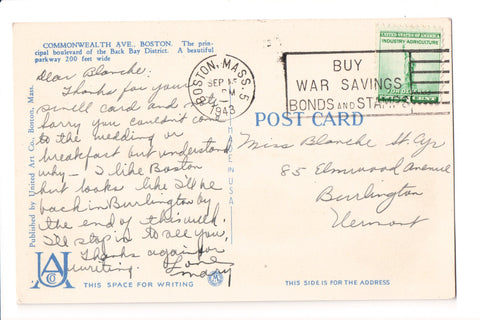 COMMONWEALTH AVE., BOSTON. The prin-
cipal boulevard of the Back Bay District. A beautiful
parkway 200 feet wide
Dear Blanche:
Thanks for your
swell card and
sorry you couldn't come
to the wedding or
breakfast but understand
why - I like Boston
but looks like I'll be
back in Burlington by
the end of this week.
I'll stop in to see you,
Thanks again for
writing. Love
Mary
THIS SPACE FOR WRITING
Published by United Art Co., Boston, Mass.
UACo
MADE IN U.S.A.
BOSTON, MASS. 5
SEP 15
PM
1943
BUY
WAR SAVINGS
BONDS AND STAMPS
UNITED STATES OF AMERICA
INDUSTRY-AGRICULTURE
POST CARD
Miss Blanche St. Cyr
85 Elmwood Avenue
Burlington
Vermont
THIS SIDE IS FOR THE ADDRESS